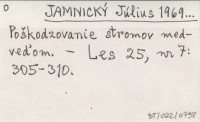 o
JAMNICKÝ Július 1969...
Poškodzovanie stromov med-
veďom. - Les 25, nr 7:
305-310.
BT/022/0738